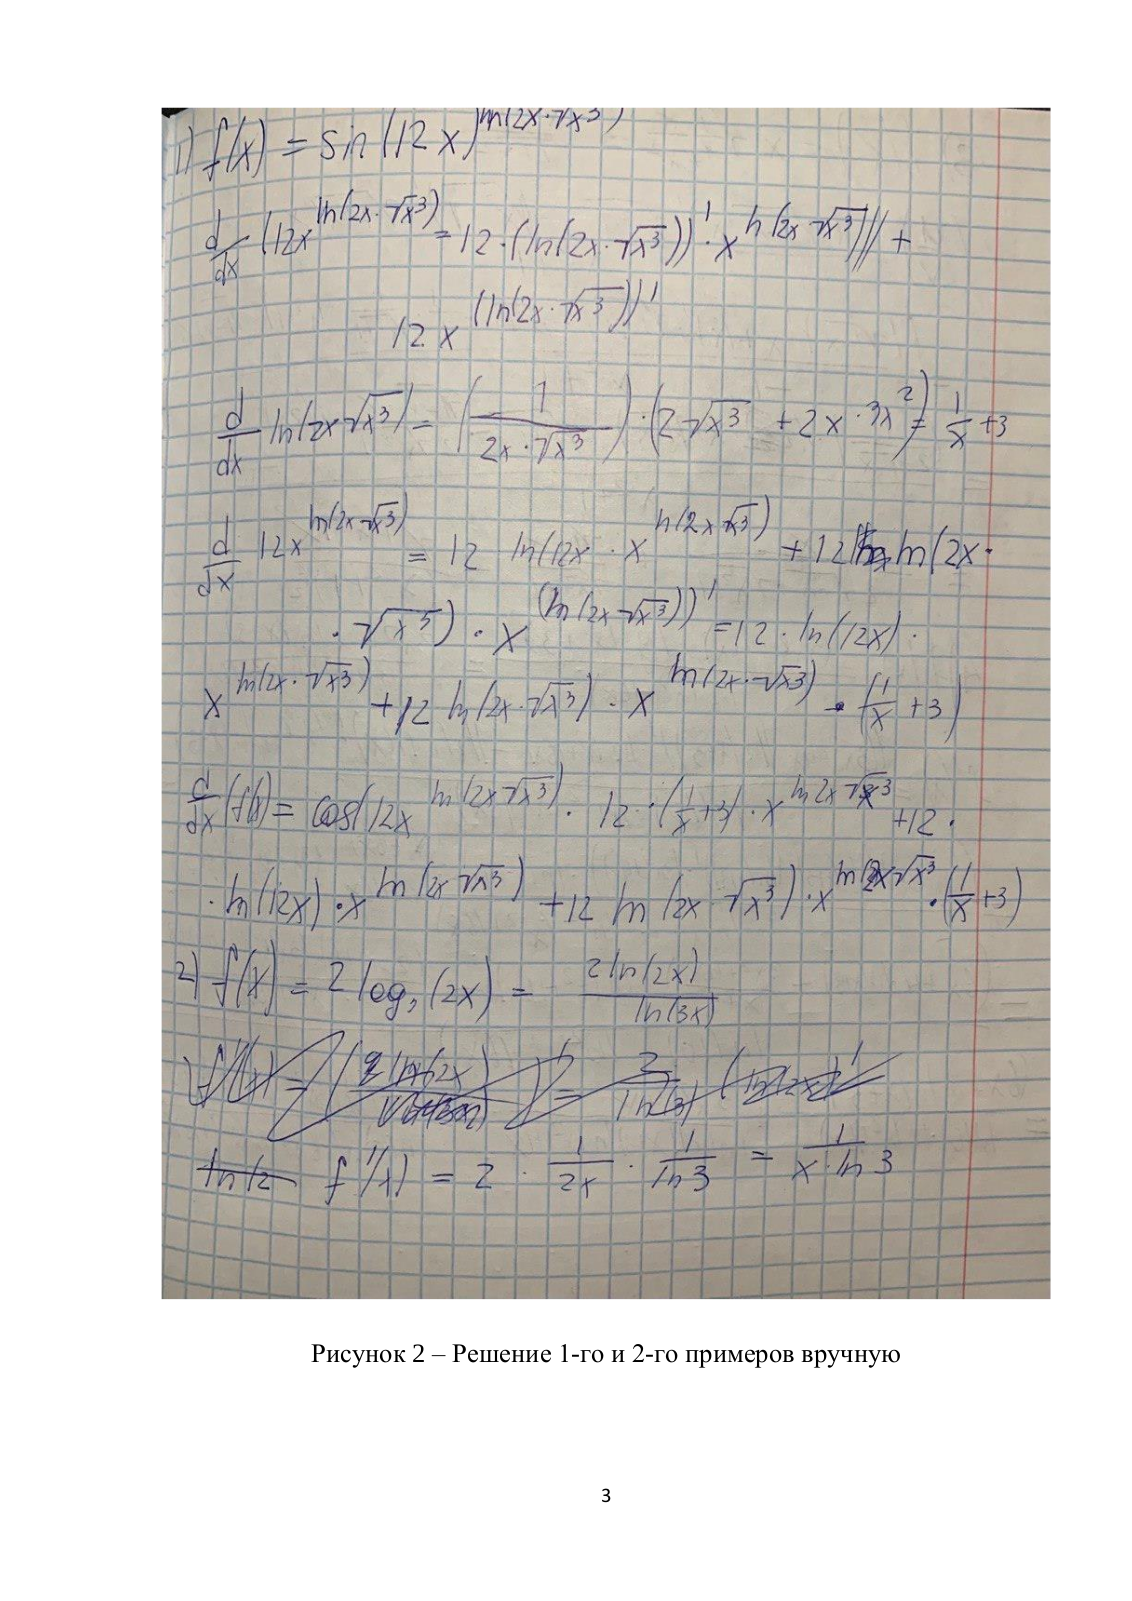 1) f(x) = sin(12x)^ln(2x·√x³)
d/dx (12x^ln(2x·√x³) = 12·(ln(2x·√x³))'·x^ln(2x √x³))) +
12x^(ln(2x·√x³))'
d/dx ln(2x√x³) = (1/(2x·√x³))·(2√x³ + 2x·3x²) = 1/x + 3
d/dx 12x^ln(2x·√x³) = 12 ln(12x · x^ln(2x √x³) + 12 ln(2x·
·√x³)·x^(ln(2x·√x³))' = 12·ln(12x)·
x^ln(2x·√x³) + 12 ln(2x·√x³)·x^ln(2x·√x³) · (1/x + 3)
d/dx (f(x) = cos(12x^ln(2x√x³) · 12·(1/x+3)·x^ln2x√x³ + 12·
·ln(12x)·x^ln(2x√x³) + 12 ln(2x √x³)·x^ln(2x√x³ · (1/x + 3)
2) f(x) = 2 log₃(2x) = 2ln(2x)/ln(3x)
f'(x) = 2 · 1/2x · 1/ln3 = 1/x·ln3
Рисунок 2 – Решение 1-го и 2-го примеров вручную
3